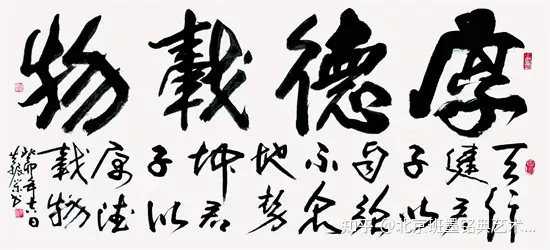 厚德載物
天行
健君
子以
自強
不息
地勢
坤君
子以
厚德
載物
癸卯年
知乎 @北京班墨铭典艺术...